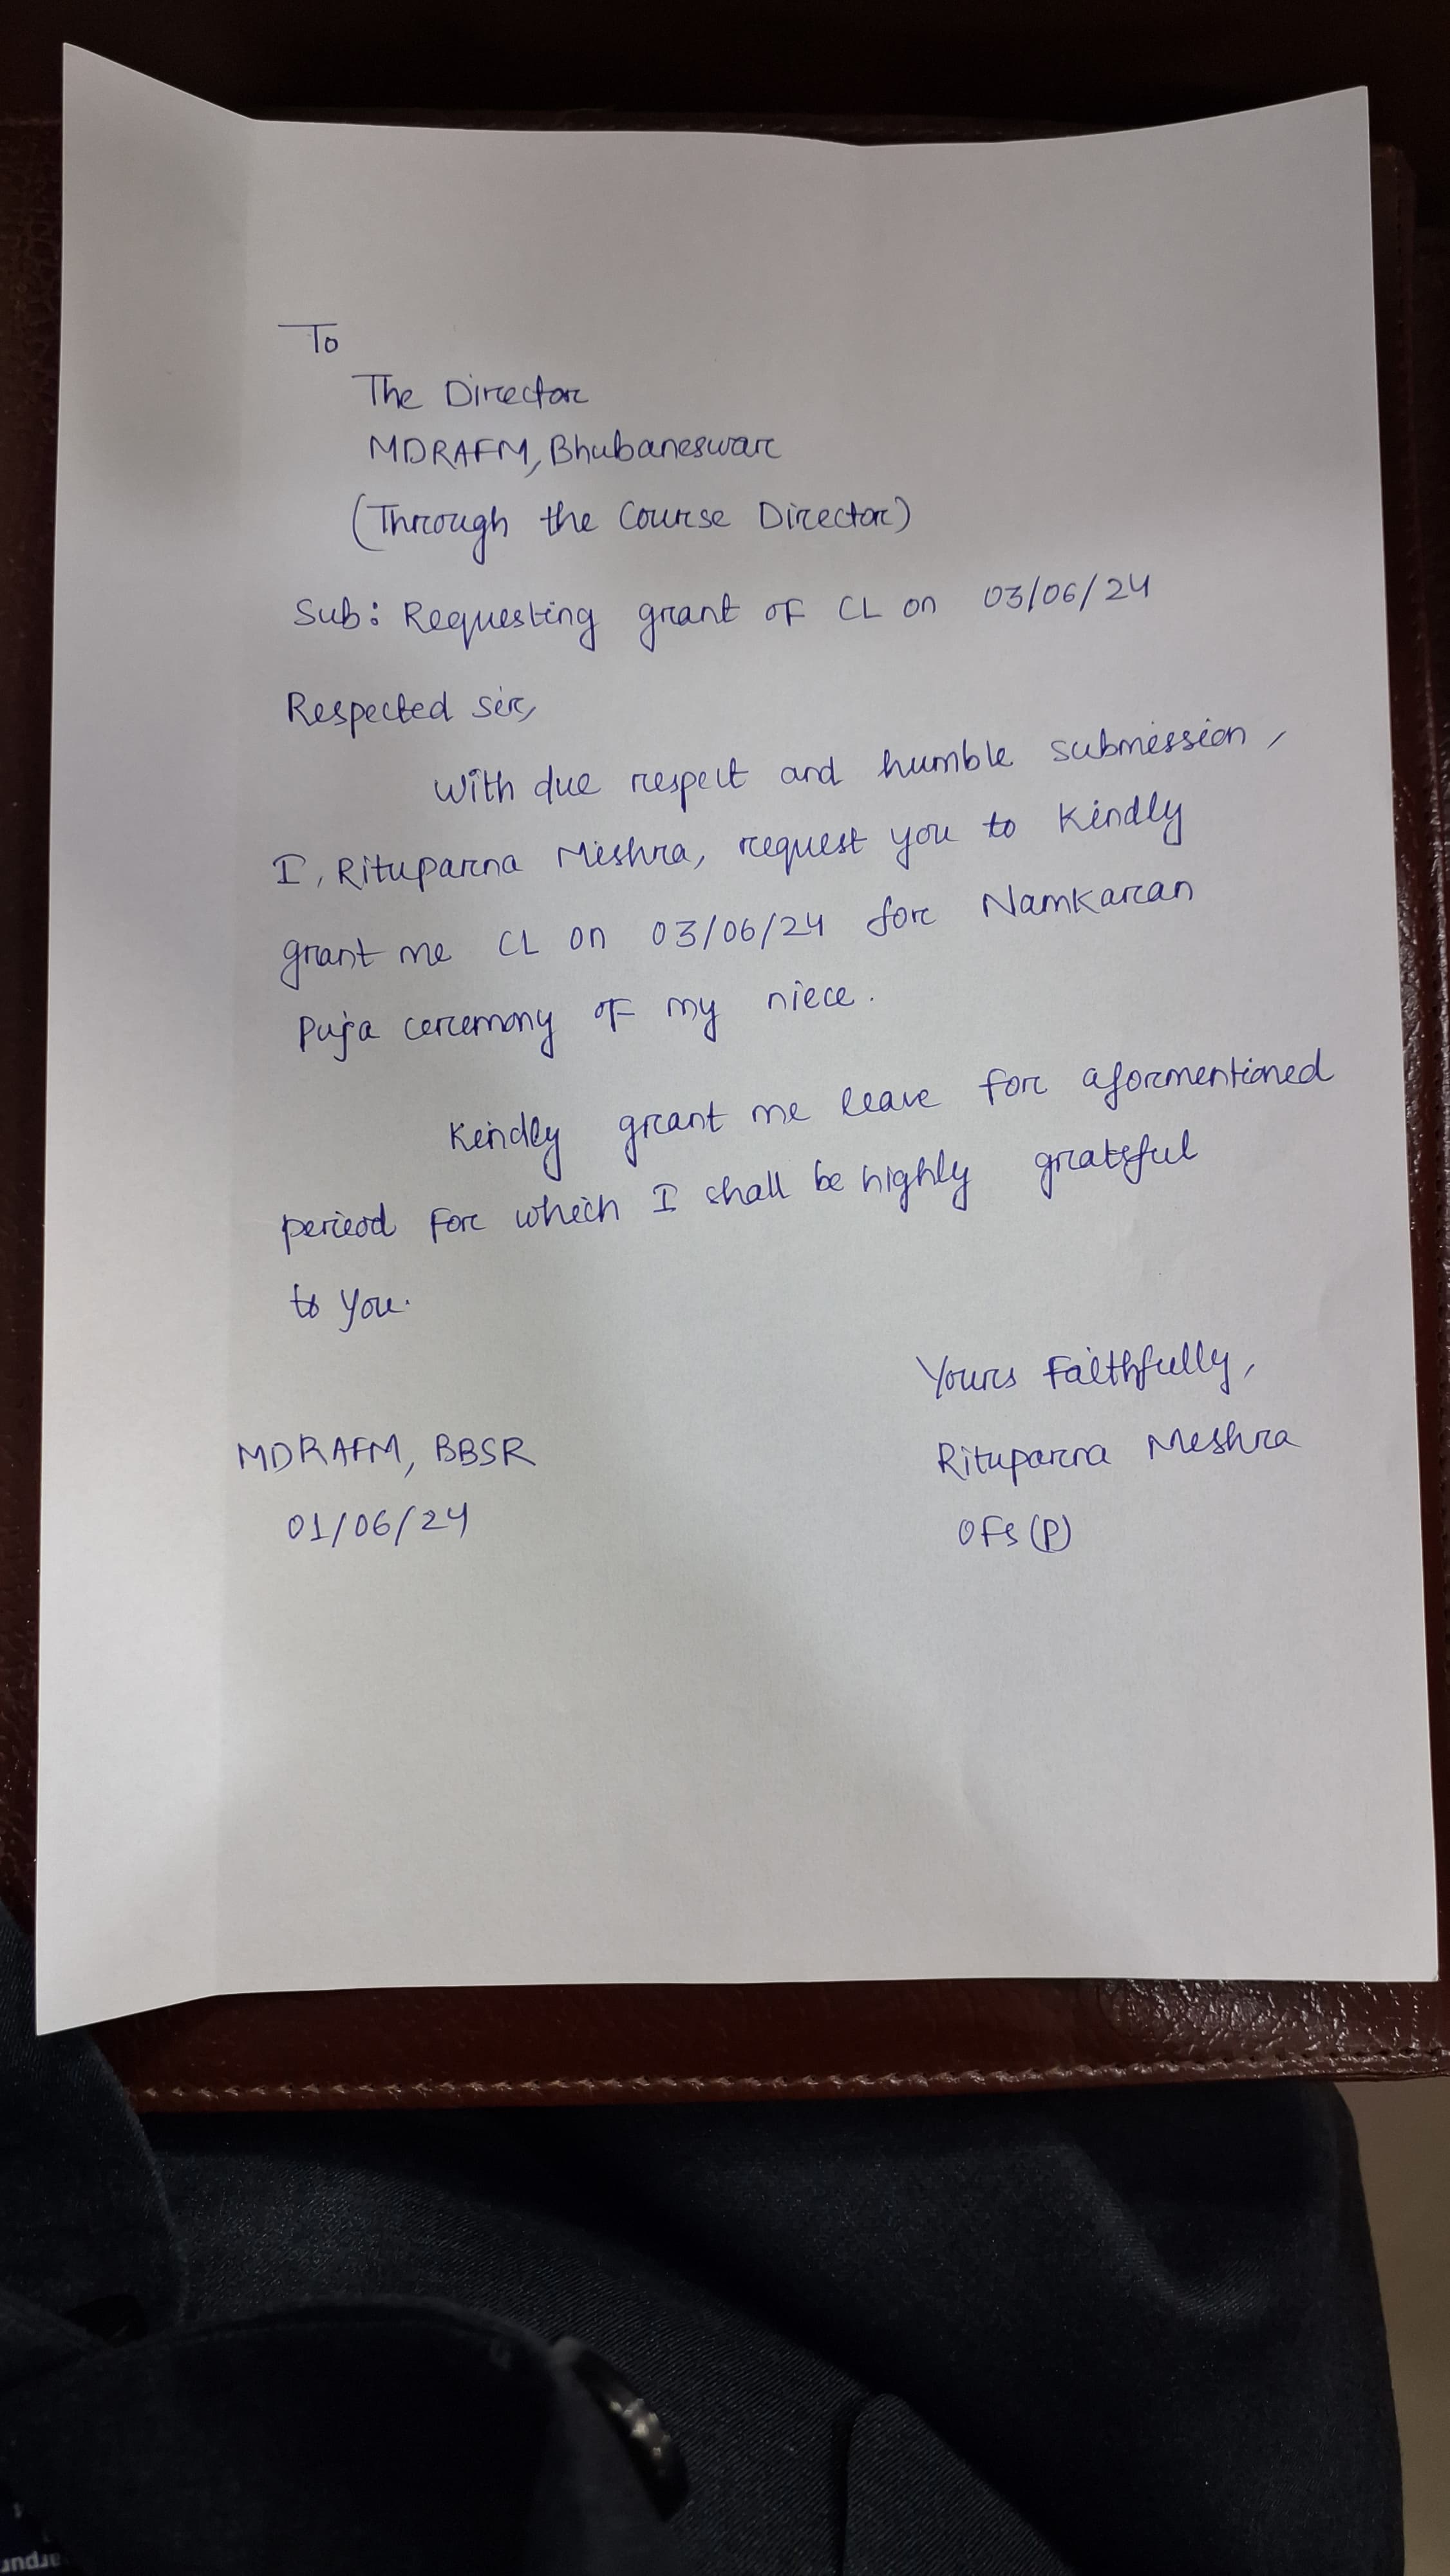 To
The Director
MDRAFM, Bhubaneswar
(Through the Course Director)
Sub: Requesting grant of CL on 03/06/24
Respected sir,
With due respect and humble submission,
I, Rituparna Mishra, request you to kindly
grant me CL on 03/06/24 for Namkaran
Puja ceremony of my niece.
Kindly grant me leave for aformentioned
period for which I shall be highly grateful
to you.
Yours Faithfully,
MDRAFM, BBSR
Rituparna Mishra
01/06/24
OFS(P)